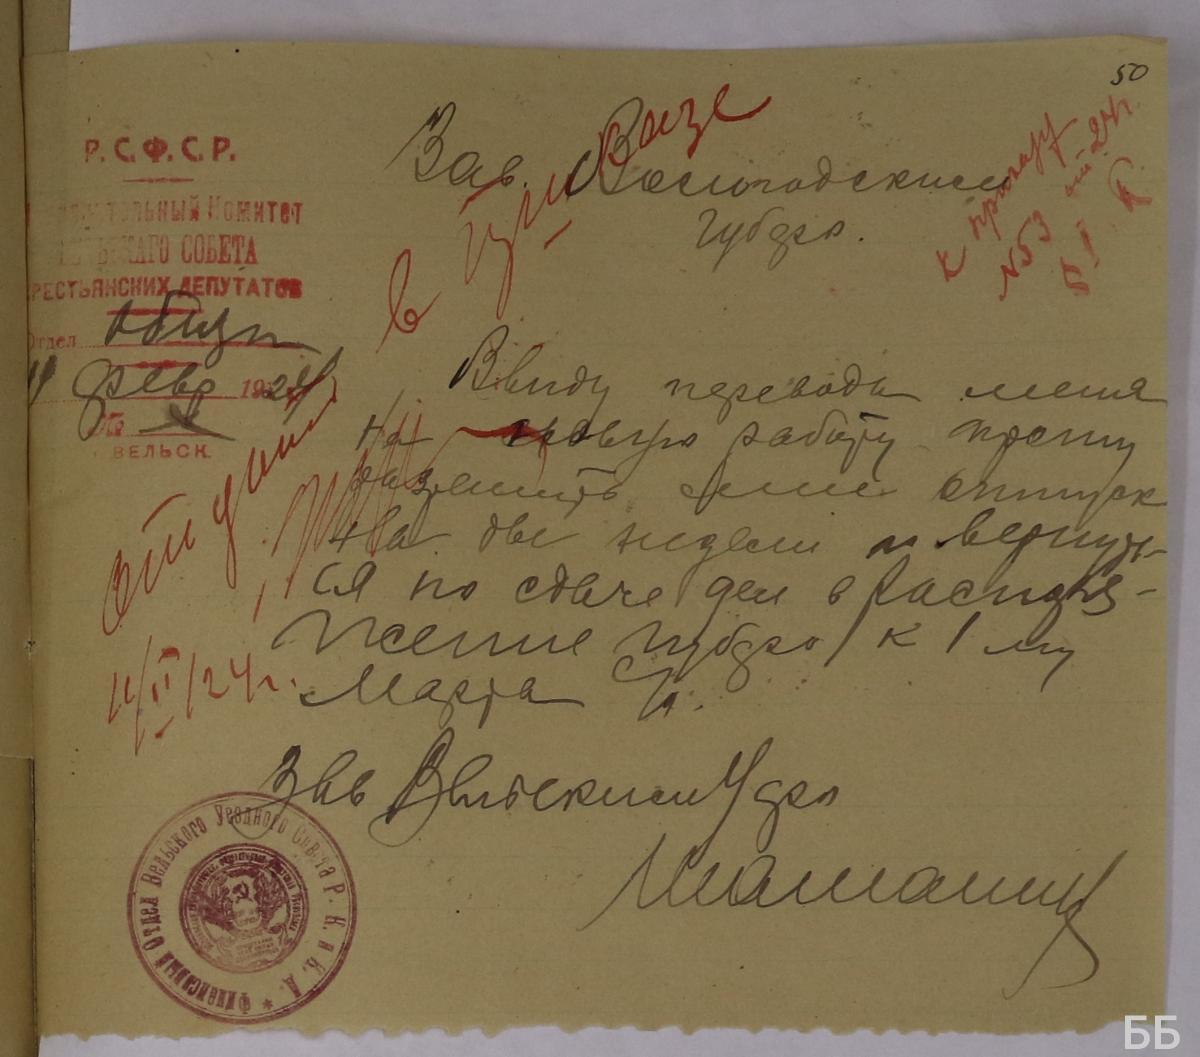 50
Р.С.Ф.С.Р.
Комитет
СОВЕТА
РЕСТЬЯНСКИХ ДЕПУТАТОВ
Отдел
11 февр 1924
№
ВЕЛЬСК.
Зав. Вологодским
Губфо.
в приказе
к приказу
№53 от -24г.
Ввиду перевода меня
на новую работу прошу
разрешить мне отпуск
на две недели и вернуть-
ся по сдаче дел в распоря-
жение Губфо к 1 му
Марта
11/II/24г.
Зав Вельским Уфо
Финансовый Отдел Вельского Уездного Совета Р. К. и К. Д.
ББ